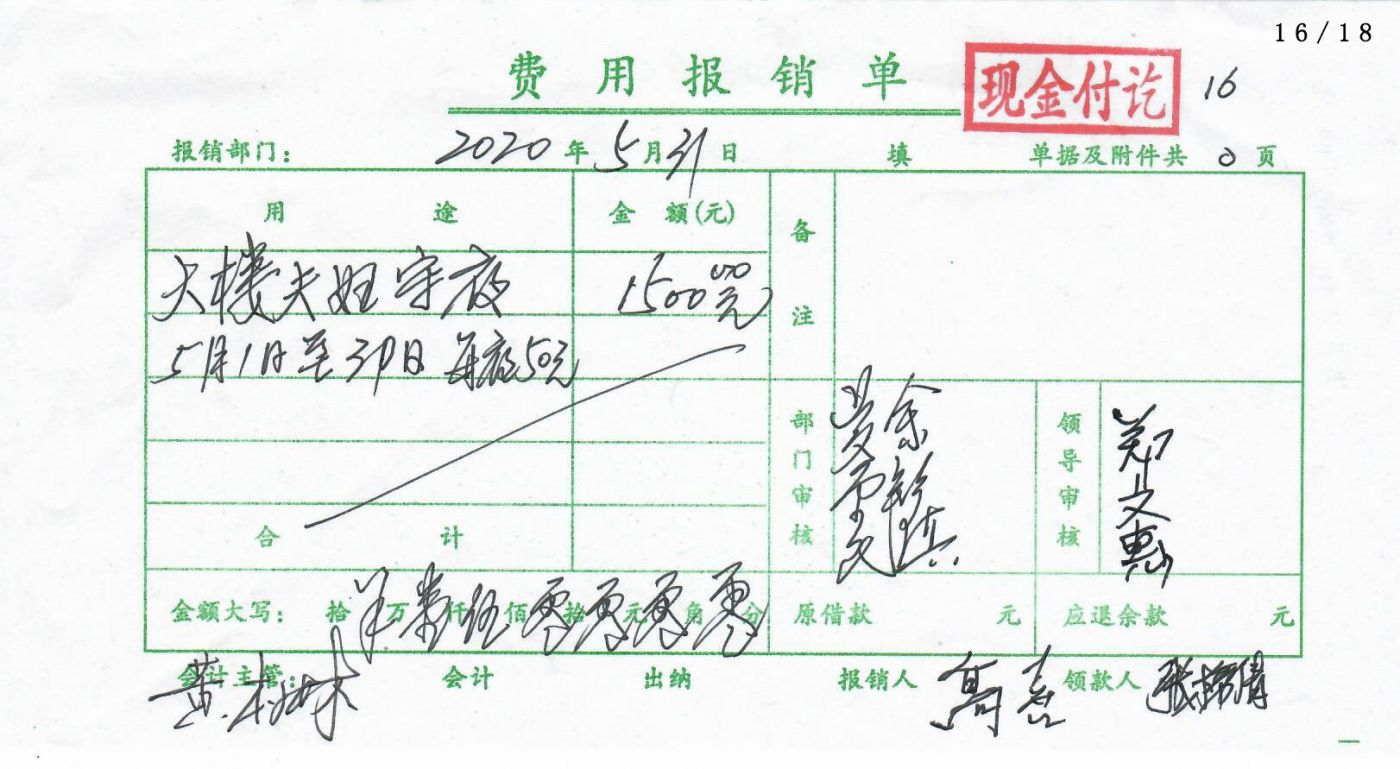 16/18
费用报销单 现金付讫 16
报销部门： 2020年5月31日 填 单据及附件共 0 页
用途 金额(元) 备注
大楼夫妇守夜 1500.00元
5月1日至30日 每夜50元
部门审核 余 领导审核 郑文惠
合计
金额大写： 拾 万 仟 伍佰 零拾 零元 零角 零分 原借款 元 应退余款 元
会计主管： 黄 林 会计 出纳 报销人 高 领款人 张